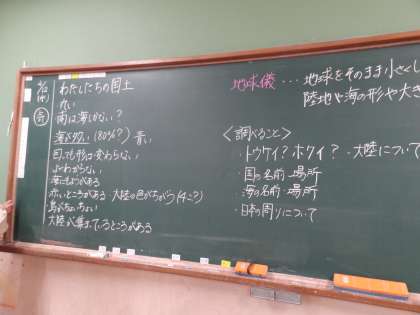 わたしたちの国土
丸い
南は海しかない?
海が多い(80%?) 青い
形は変わらない
よくわからない
がある
赤いところがある・大陸の色がちがう(4こ?)
島がちょいちょい
大陸が集まっているところがある
地球儀・・・地球をそのまま小さくし
陸地や海の形や大き
<調べること>
・トウケイ?ホクイ?・大陸について
・国の名前・場所
・海の名前・場所
・日本の周りについて